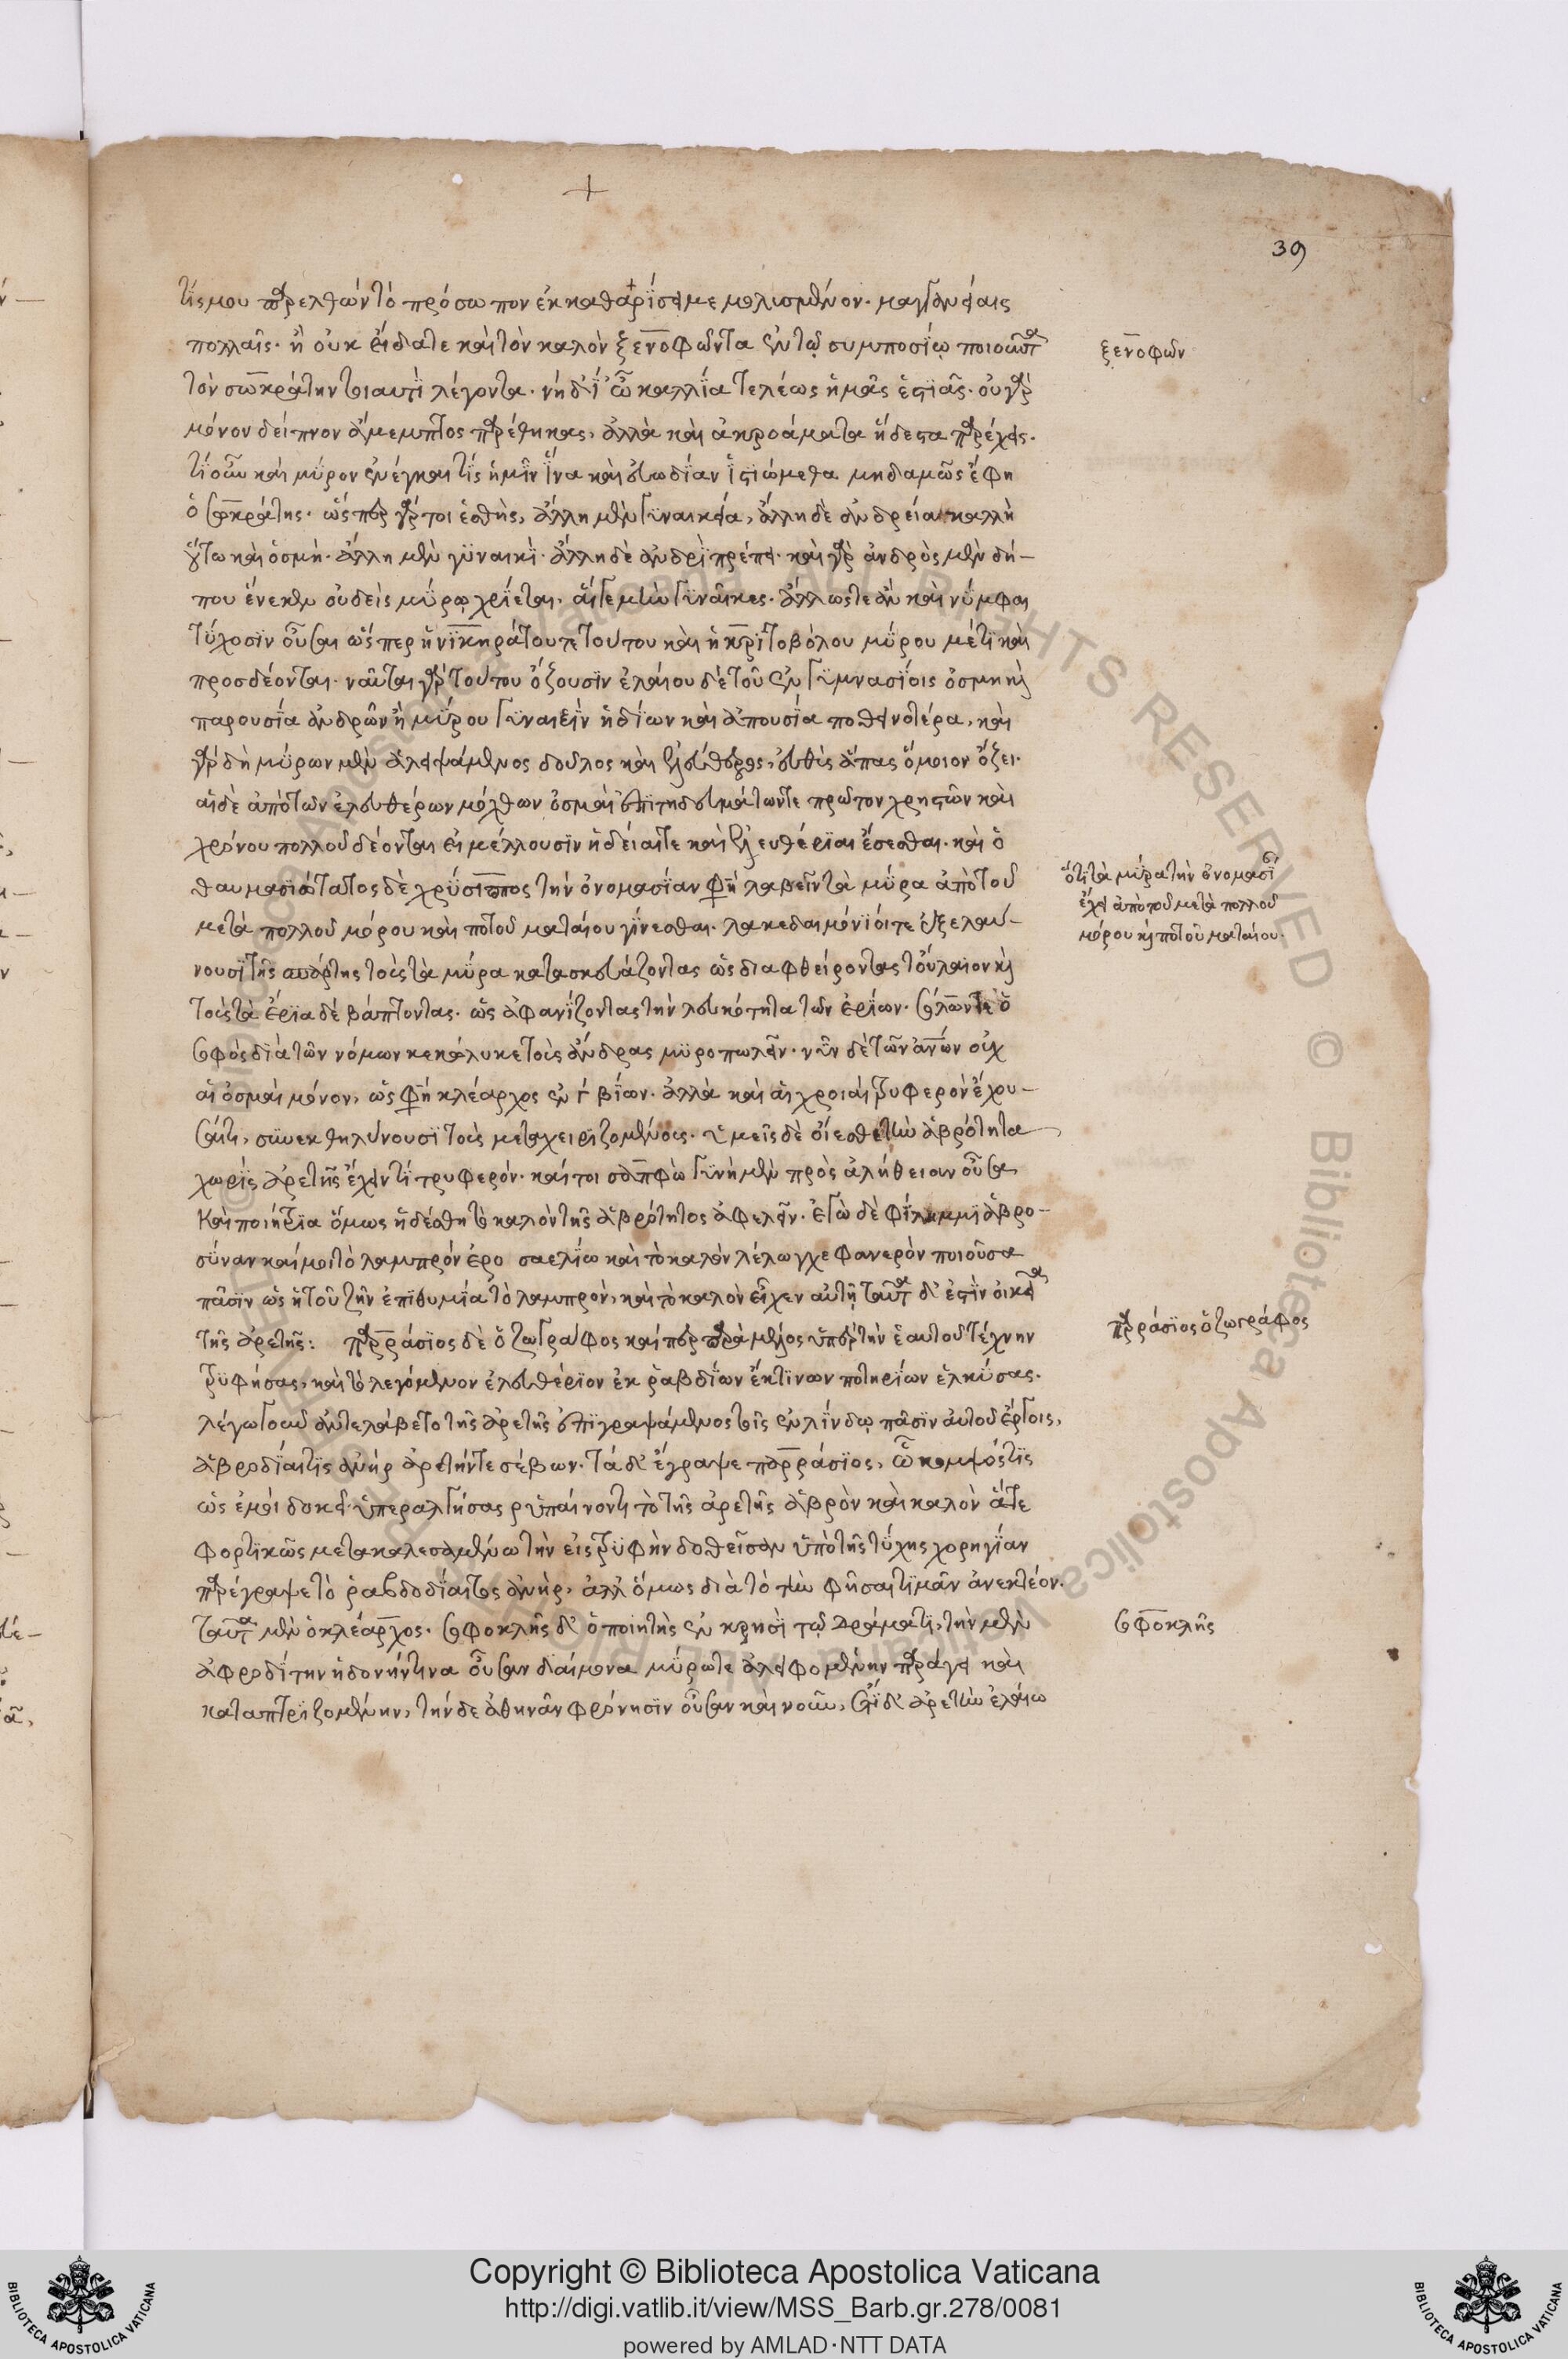 39
τίς μου παρελθὼν τὸ πρόσωπον ἐκκαθαρίσει με μολυσμένον. μαγγανείαις
πολλαῖς. ἢ οὐκ οἴδατε καὶ τὸν καλὸν ξενοφῶντα ἐν τῷ συμποσίῳ ποιοῦντα
ξενοφῶν
τὸν σωκράτην τοιαυτὶ λέγοντα. νὴ δΐ ὦ καλλία τελέως ἡμᾶς ἑστιᾶς. οὐ γὰρ
μόνον δεῖπνον ἄμεμπτος παρέθηκας, ἀλλὰ καὶ ἀκροάματα ἥδεστα παρέχεις.
τί οὖν καὶ μύρον ἐνέγκαι τίς ἡμῖν ἵνα καὶ εὐωδίαν ἱστιώμεθα μηδαμῶς ἔφη
ὁ σωκράτης. ὥσπερ γάρ τοι ἐσθὴς, ἄλλη μὲν γυναικεία, ἄλλη δὲ ἀνδρεία καλλὴ
οὕτω καὶ ὀσμή. ἄλλη μὲν γυναικὶ. ἄλλη δὲ ἀνδρὶ πρέπει. καὶ γὰρ ἀνδρὸς μὲν δή-
που ἕνεκεν οὐδεὶς μύρῳ χρίεται. αἵ γε μὴν γυναῖκες. ἄλλως τε ἂν καὶ νύμφαι
τύχοσιν οὖσαι ὥσπερ ἡ νικηράτου τε τούτου καὶ ἡ κριτοβόλου μύρου μέτι καὶ
προσδέονται. ναῦται γὰρ τούτου ὄζουσιν ἐλαίου δὲ τοῦ ἐν γυμνασίοις ὀσμὴ καὶ
παρουσία ἀνδρῶν ἢ μύρου γυναιξὶν ἡδίων καὶ ἀπουσία ποθεινοτέρα, καὶ
γὰρ δὴ μύρων μὲν ἀλειψάμενος δοῦλος καὶ ἐλεύθερος, εὐθὺς ἅπας ὅμοιον ὄζει.
αἱ δὲ ἀπὸ τῶν ἐλευθέρων μόχθων ὀσμαὶ ἐπιτηδευμάτων τε πρῶτον χρηστῶν καὶ
χρόνου πολλοῦ δέονται εἰ μέλλουσιν ἡδεῖαί τε καὶ ἐλευθέριαι ἔσεσθαι. καὶ ὁ
θαυμασιώτατος δὲ χρύσιππος τὴν ὀνομασίαν φησὶ λαβεῖν τὰ μύρα ἀπὸ τοῦ
ὅτι τὰ μύρα τὴν ὀνομασί
ἔχει ἀπὸ τοῦ μετὰ πολλοῦ
μόρου καὶ πότου ματαίου.
μετὰ πολλοῦ μόρου καὶ πότου ματαίου γίνεσθαι. λακεδαιμόνιοί τε ἐξελαύ-
νουσι τῆς σπάρτης τοὺς τὰ μύρα κατασκευάζοντας ὡς διαφθείροντας τοὔλαιον καὶ
τοὺς τὰ ἔρια δὲ βάπτοντας. ὡς ἀφανίζοντας τὴν λευκότητα τῶν ἐρίων. σόλων τε ὁ
σοφὸς διὰ τῶν νόμων κεκώλυκε τοὺς ἄνδρας μυροπωλεῖν. νῦν δὲ τῶν ἀνθρώπων οὐχ
αἱ ὀσμαὶ μόνον, ὥς φησὶ κλέαρχος ἐν γ βίων. ἀλλὰ καὶ αἱ χροιαὶ τρυφερὸν ἔχου-
σαί τι, συνεκθηλύνουσι τοὺς μεταχειριζομένους. ὑμεῖς δὲ οἴεσθε τὴν ἁβρότητα
χωρὶς ἀρετῆς ἔχειν τί τρυφερόν. καίτοι σαπφὼ γυνὴ μὲν πρὸς ἀλήθειαν οὖσα
καὶ ποιήτρια ὅμως ἠδέσθη τὸ καλὸν τῆς ἁβρότητος ἀφελεῖν. ἐγὼ δὲ φίλημμι ἁβρο-
σύναν καί μοι τὸ λαμπρόν ἐρο σαελίω καὶ τὸ καλὸν λέλωγχε φανερὸν ποιοῦσα
πᾶσιν ὡς ἡ τοῦ ζῆν ἐπιθυμία τὸ λαμπρὸν, καὶ τὸ καλὸν εἶχεν αὐτῇ ταῦτα δ᾽ ἐστὶν οἰκεῖα
τῆς ἀρετῆς: παρράσιος δὲ ὁ ζωγράφος καίπερ παρὰ μέλος ὑπὲρ τὴν ἑαυτοῦ τέχνην
παρράσιος ὁ ζωγράφος
τρυφήσας, καὶ τὸ λεγόμενον ἐλευθέριον ἐκ ῥαβδίων ἔκ τινων ποτηρίων ἑλκύσας.
λέγω γοῦν ἀντελάβετο τῆς ἀρετῆς ἐπιγραψάμενος τοῖς ἐν λίνδῳ πᾶσιν αὐτοῦ ἔργοις,
ἁβροδίαιτις ἀνὴρ ἀρετήν τε σέβων. τάδ᾽ ἔγραψε παρράσιος, ὦ κομψός τις
ὡς ἐμοὶ δοκεῖ ὑπεραλγήσας ῥυπαίνοντι τὸ τῆς ἀρετῆς ἁβρὸν καὶ καλὸν ἅτε
φορτικῶς μετακαλεσαμένω τὴν εἰς τρυφὴν δοθεῖσαν ὑπὸ τῆς τύχης χορηγίαν
παρέγραψε τὸ ῥαβδοδίαιτος ἀνὴρ, ἀλλ᾽ ὅμως διὰ τὸ τὴν φῆσαι τιμᾶν ἀνεκτέον.
ταῦτα μὲν ὁ κλέαρχος. σοφοκλῆς δ᾽ ὁ ποιητὴς ἐν κρησὶ τῷ δράματι, τὴν μὲν
σοφοκλῆς
ἀφροδίτην ἡδονήν τινα οὖσαν δαίμονα μύρω τε ἀλειφομένην παράγει καὶ
καταπτριζομένην, τὴν δὲ ἀθηνᾶν φρόνησιν οὖσαν καὶ νοῦν, ἔτι δ᾽ ἀρετὴν ἐλαίω
Copyright © Biblioteca Apostolica Vaticana
http://digi.vatlib.it/view/MSS_Barb.gr.278/0081
powered by AMLAD·NTT DATA